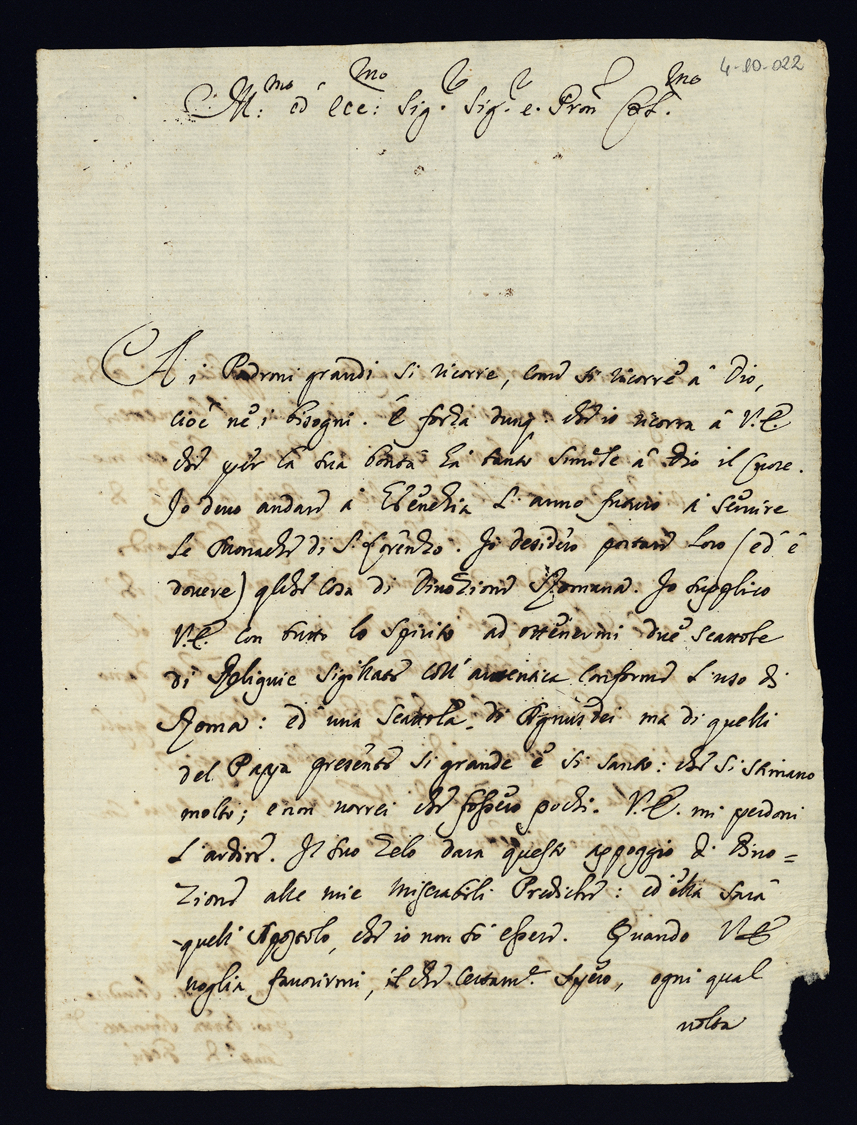 4-10-022
Ill:mo ed Ecc:mo Sig.r Sig.r e Pron Col.mo
Ai Padroni grandi si ricorre, come si ricorre à Dio,
cioè nè i bisogni. È forza dunq: che io ricorra à V.E.
che per la sua bontà hà tanto simile à Dio il Cuore.
Io devo andare à Venezia l'anno futuro à servire
le Monache di S. Lorenzo. Io desidero portare loro (ed è
dovere) qlche cosa di Divozione Romana. Io supplico
V.E. con tutto lo spirito ad ottenermi due scattole
di Reliquie sigillate coll'autentica conforme l'uso di
Roma: ed una scattola di Agnusdei ma di quelli
del Papa presente si grande è si santo: che si stimano
molto; e non vorrei che fossero pochi. V.E. mi perdoni
l'ardire. Il suo zelo dara questo appoggio di Divo=
zione alle mie miserabili Prediche: ed ella sarà
quell'Apostolo, che io non sò essere. Quando V.E.
voglia favorirmi, il che certam.te spero, ogni qual
volta